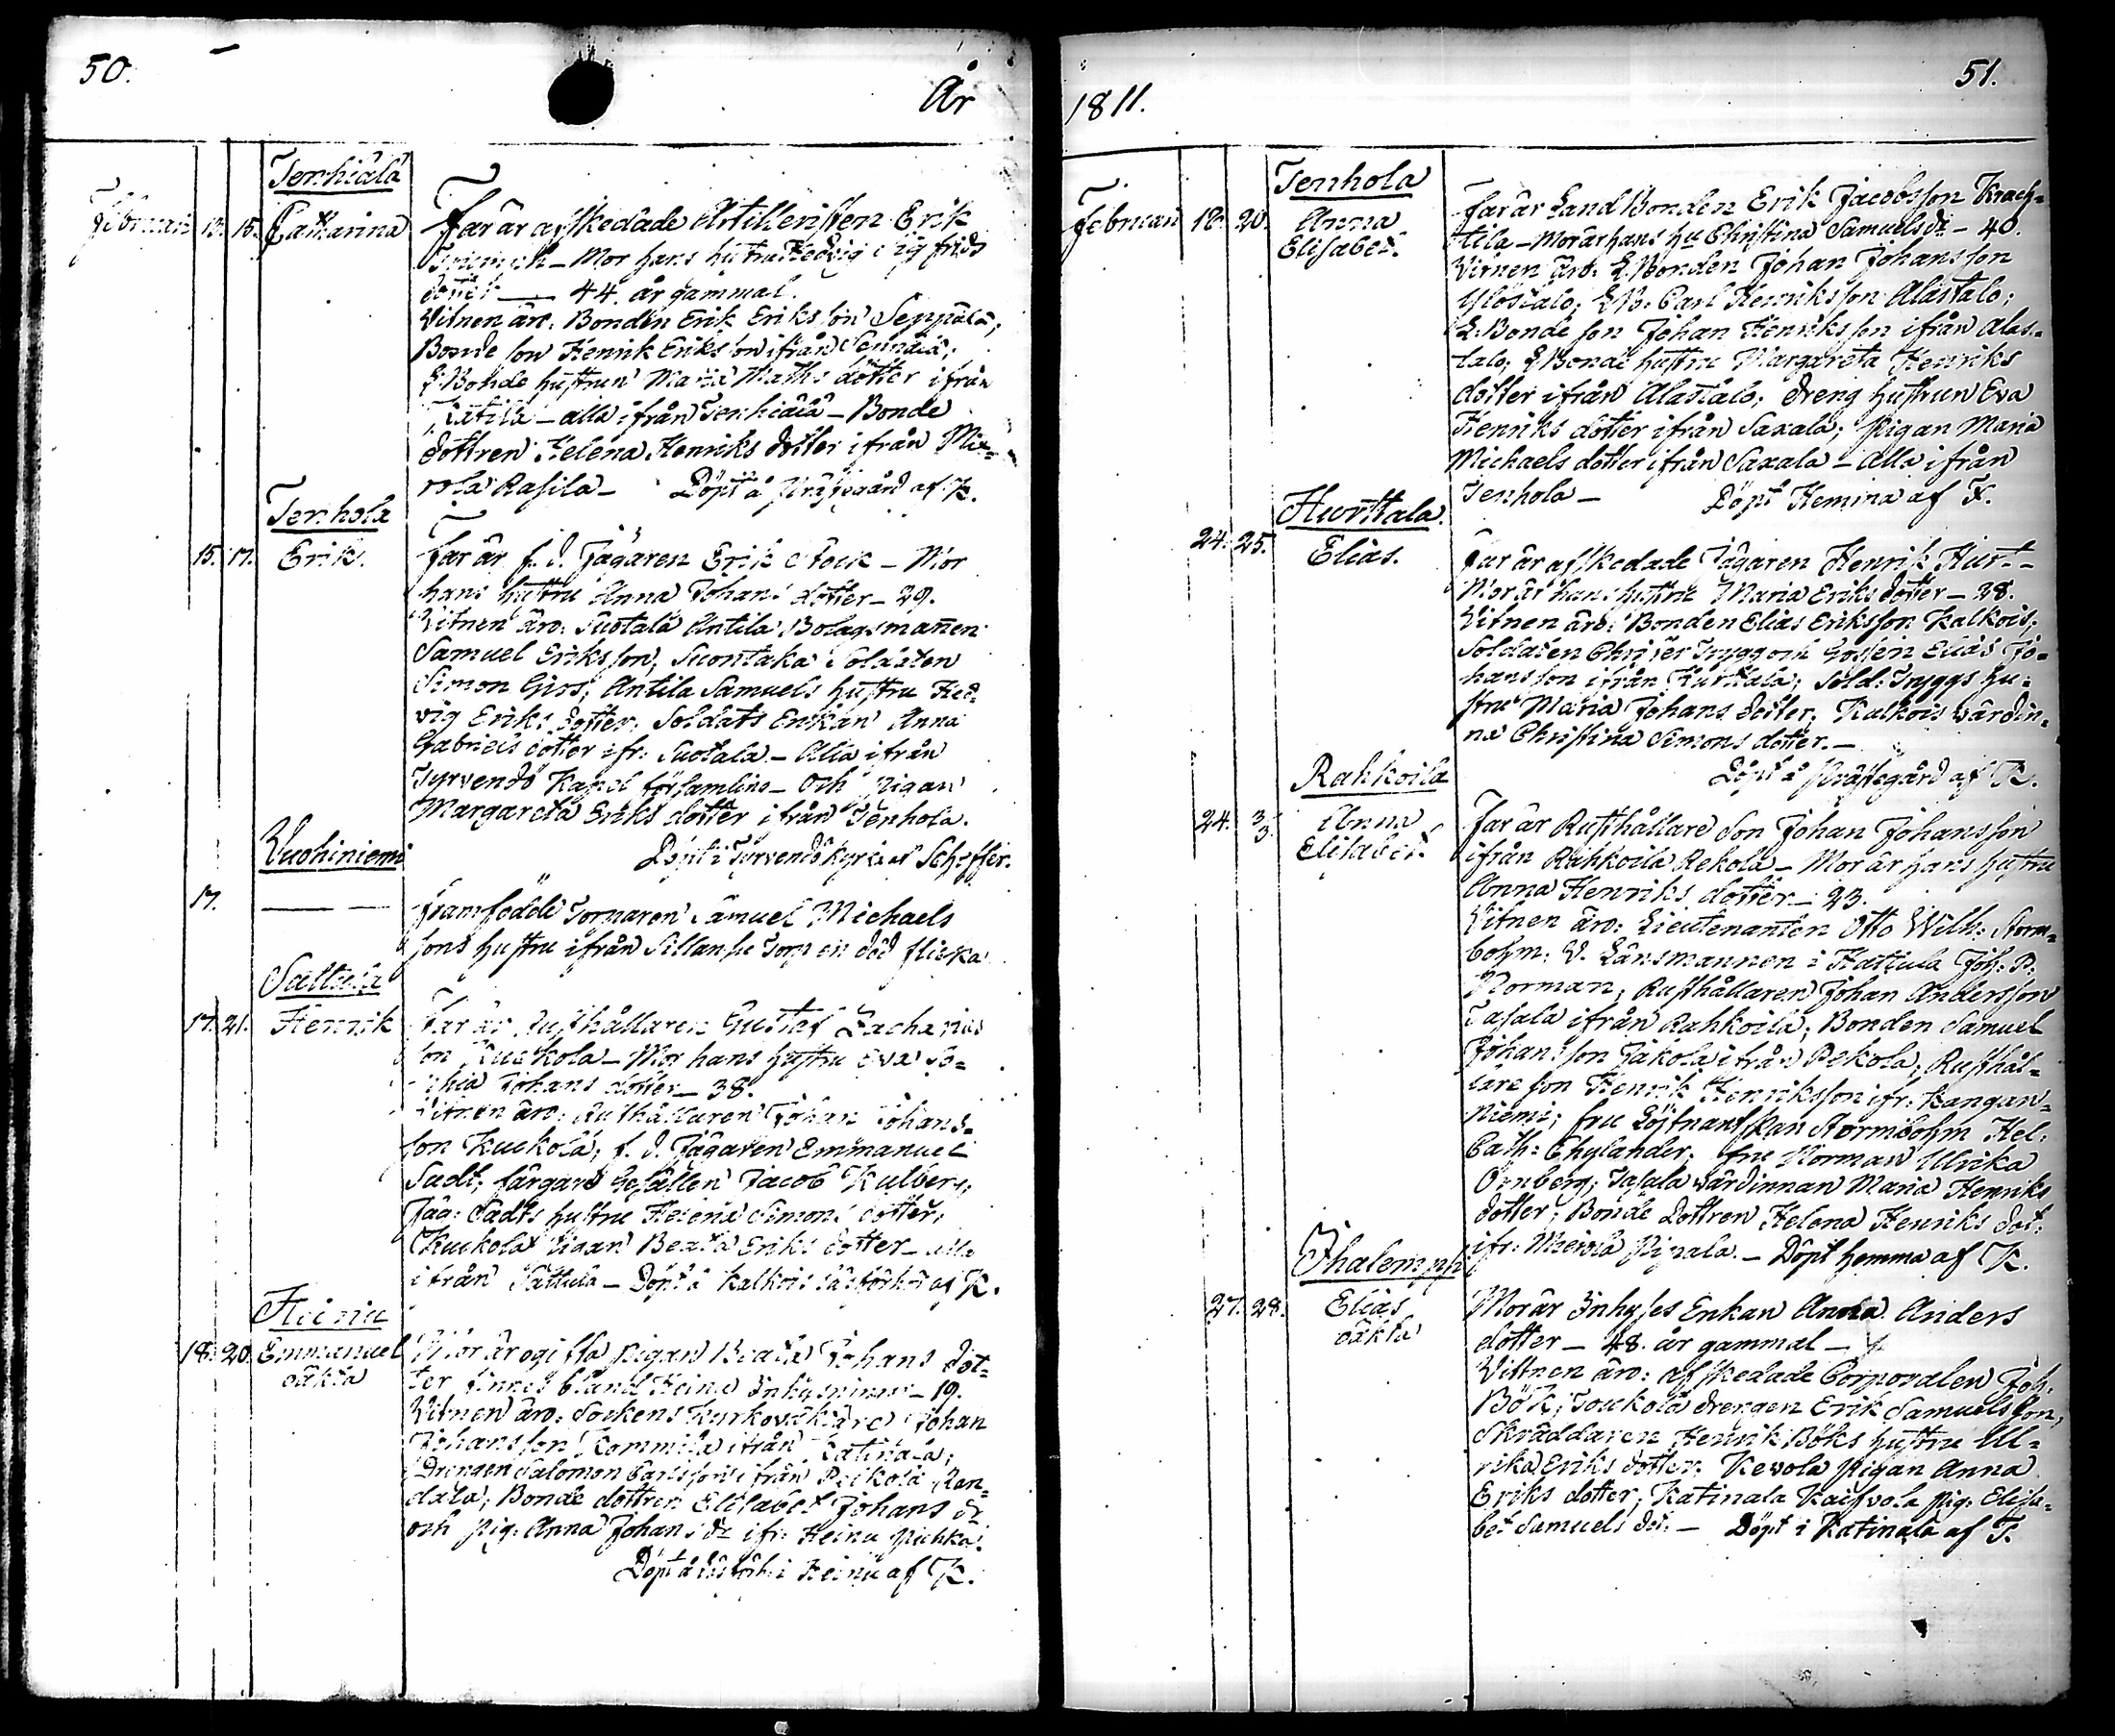 50.
År
Terhiälä
Februari 13. 15. Catharina
Far är afskedade Artilleristen Erik
Mor hans hustru Hedvig
44. år gammal.
Vitnen äro: Bonden Erik Eriksson Seppälä;
Bonde son Henrik Eriksson ifrån
L. Bonde hustrun Maria Matths dotter ifrån
alla ifrån Terhiälä – Bonde
dottren Helena Henriks dotter ifrån Mie-
rola Rasila – Döpt å Prästegård af K.
Tenhola
15. 17. Erik.
Far är f. d. Jägaren Erik Stock – Mor
hans hustru Anna Johans dotter – 29.
Vitnen äro: Suotala Antila Bolagsmannen
Samuel Eriksson, Suontaka Soldaten
Simon Girs; Antila Samuels hustru Hed-
vig Eriks dotter; Soldats Enkan Anna
Gabriels dotter ifr: Suotala – Alla ifrån
Tyrvendö Kapel församling – Och Pigan
Margareta Eriks dotter ifrån Tenhola.
Döpt i Tyrvendö Kyrka af Scheffer.
Vuohiniemi
17. — —
Framfödde Torparen Samuel Michaels
sons hustru ifrån Sillanpe Torp en död flicka
Sattula
17. 21. Henrik
Far är Rusthållaren Gustaf Zacharias
son Kuckola – Mor hans hustru Eva So-
phia Johans dotter – 38.
Vitnen äro: Rusthållaren Johan Johans-
son Kuckola; f. d. Jägaren Emmanuel
Sadt; färgare Gesällen Jacob Kulberg;
Jäg: Sadts hustru Helena Simons dotter;
Kuckola Pigan Beata Eriks dotter – alla
ifrån Sattula – Döpt å Kalkois läsförhör af K.
Heinu
18. 20. Emmanuel
oäkta
Mor är ogifta pigan Beata Johans dot-
ter finnes bland Heinu Inhysinne – 19.
Vitnen äro: Sockens Kyrkoväktare Johan
Johansson Kommila ifrån Katinala;
Drengen Salomon Carlsson ifrån Pelkola
dala; Bonde dottren Elisabet Johans dr
och pig: Anna Johans dr ifr: Heinu Pichka.
Döpt å läsförh: i Heinu af K.
51.
1811.
Tenhola
Februari 18. 20. Anna
Elisabet.
Far är Land Bonden Erik Jacobsson Krach-
tila – Mor är hans hu Christina Samuels dr – 40.
Vitnen äro: L. Bonden Johan Johansson
Ylöstalo; L. B: Carl Henriksson Alastalo;
L. Bonde son Johan Henriksson ifrån Alas-
talo; L Bonde hustru Margareta Henriks
dotter ifrån Alastalo; dreng hustrun Eva
Henriks dotter ifrån Saxala; Pigan Maria
Michaels dotter ifrån Saxala – Alla ifrån
Tenhola – Döpt Hemma af F.
Hurttala.
24. 25. Elias.
Far är afskedade Jägaren Henrik Hurt –
Mor är hans hustru Maria Eriks dotter – 28.
Vitnen äro: Bonden Elias Eriksson Kalkois;
Soldaten Christer Trygg och Gossen Elias Jo-
hansson ifrån Hurttala; Sold: Tryggs hu-
stru Maria Johans dotter; Kalkois wärdin-
na Christina Simons dotter. –
Döpt å Prästegård af K.
Rahkoila
24. 3/3. Anna
Elisabet.
Far är Rusthållare Son Johan Johansson
ifrån Rahkoila Rekola – Mor är hans hustru
Anna Henriks dotter – 23.
Vitnen äro: Lieutenanten Otto Wilh: Storm-
bohm; V. Länsmannen i Hattula Joh: P.
Norman; Rusthållaren Johan Andersson
Tasala ifrån Rahkoila; Bonden Samuel
Johansson Jäkola ifrån Pekola; Rusthål-
lare son Henrik Henriksson ifr: Kangan-
niemi; fru Löjtnantskan Stormbohm Hel:
Cath: Chylander; fru Norman Ulrika
Örnberg; Tasala wärdinnan Maria Henriks
dotter; Bonde Dottren Helena Henriks dot:
ifr: Mierola Pipala. – Döpt hemma af K.
Ihalempi
27. 28. Elias
oäkta
Mor är Inhyses Enkan Anna Anders
dotter – 48. år gammal –
Vittnen äro: afskedade Corporalen Joh:
Bök; Jouckola drengen Erik Samuelsson;
Skräddaren Henrik Böks hustru Ul-
rika Eriks dotter; Kevola Pigan Anna
Eriks dotter; Katinala Kaisvola pig: Elisa-
bet Samuels dot: – Döpt i Katinala af F.